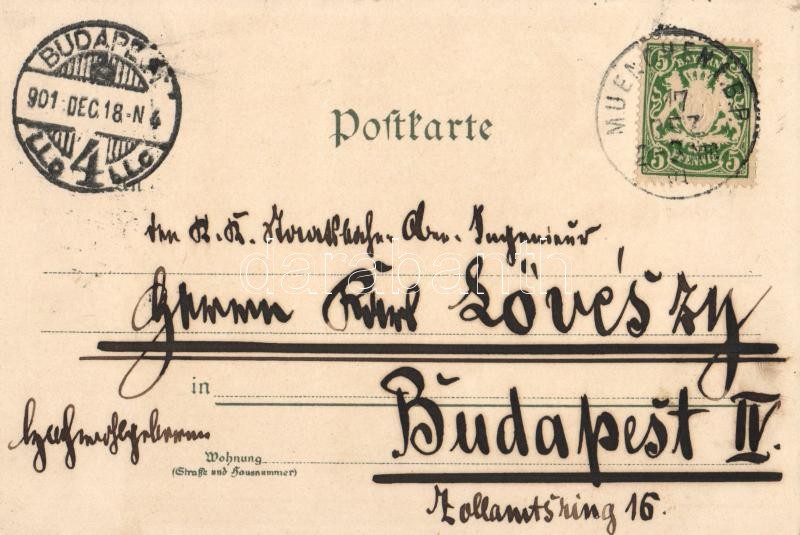 BUDAPEST
901 DEC. 18-N 4
4
Postkarte
MUENCHEN 1. B.P.
17
BAYERN
5 5
PFENNIG
den K. K. Staatsbahn-Ober-Ingenieur
darabanth
Herrn Karl Lövészy
in Budapest IV.
hochwohlgeboren
Wohnung
(Straße und Hausnummer)
Zollamtsring 16.